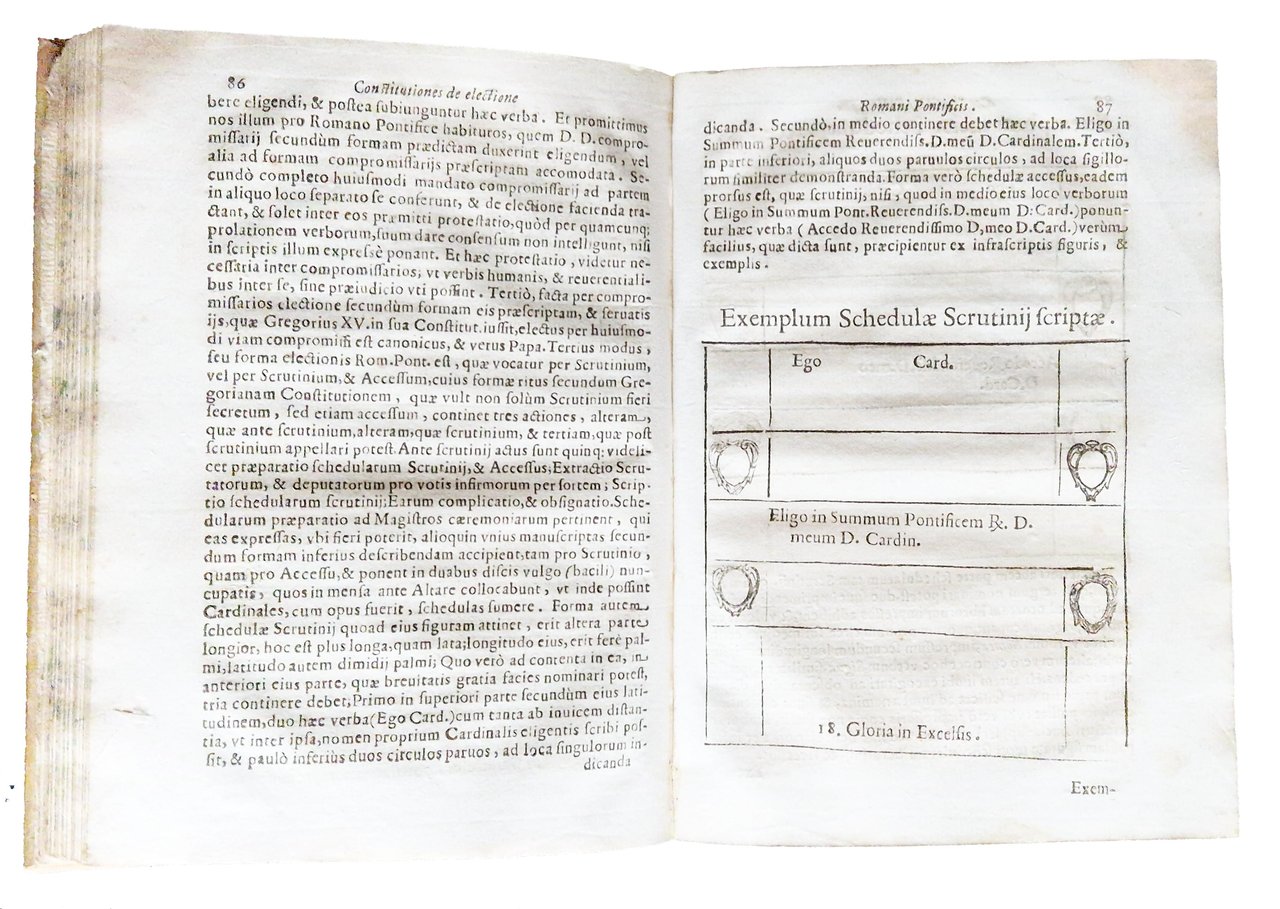 86
Constitutiones de electione
bere eligendi, & postea subiunguntur hæc verba. Et promittimus
nos illum pro Romano Pontifice habituros, quem D. D. compro-
missarij secundùm formam prædictam duxerint eligendum, vel
alia ad formam compromissarijs præscriptam accomodata. Se-
cundò completo huiusmodi mandato compromissarij ad partem
in aliquo loco separato se conferunt, & de electione facienda tra-
ctant, & solet inter eos præmitti protestatio, quòd per quamcunq;
prolationem verborum, suum dare consensum non intelligunt, nisi
in scriptis illum expressè ponant. Et hæc protestatio, videtur ne-
cessaria inter compromissarios, vt verbis humanis, & reuerentiali-
bus inter se, sine præiudicio vti possint. Tertiò, facta per compro-
missarios electione secundùm formam eis præscriptam, & seruatis
ijs, quæ Gregorius XV. in sua Constitut. iussit, electus per huiusmo-
di viam compromiss̃ est canonicus, & verus Papa. Tertius modus,
seu forma electionis Rom. Pont. est, quæ vocatur per Scrutinium,
vel per Scrutinium, & Accessum, cuius formæ ritus secundum Gre-
gorianam Constitutionem, quæ vult non solùm Scrutinium fieri
secretum, sed etiam accessum, continet tres actiones, alteram,
quæ ante scrutinium, alteram, quæ scrutinium, & tertiam, quæ post
scrutinium appellari potest. Ante scrutinij actus sunt quinq; videli-
cet præparatio schedularum Scrutinij, & Accessus; Extractio Scru-
tatorum, & deputatorum pro votis infirmorum per sortem; Scrip-
tio schedularum scrutinij; Earum complicatio, & obsignatio. Sche-
dularum præparatio ad Magistros cæremoniarum pertinent, qui
eas expressas, vbi fieri poterit, alioquin vnius manuscriptas secun-
dum formam inferius describendam accipient, tam pro Scrutinio,
quam pro Accessu, & ponent in duabus discis vulgo (bacili) nun-
cupatis, quos in mensa ante Altare collocabunt, vt inde possint
Cardinales, cum opus fuerit, schedulas sumere. Forma autem
schedulæ Scrutinij quoad eius figuram attinet, erit altera parte
longior, hoc est plus longa, quam lata; longitudo eius, erit ferè pal-
mi, latitudo autem dimidij palmi; Quo verò ad contenta in ea, in
anteriori eius parte, quæ breuitatis gratia facies nominari potest,
tria continere debet; Primo in superiori parte secundùm eius lati-
tudinem, duo hæc verba (Ego Card.) cum tanta ab inuicem distan-
tia, vt inter ipsa, nomen proprium Cardinalis eligentis scribi pos-
sit, & paulò inferiùs duos circulos paruos, ad loca singulorum in-
dicanda
Romani Pontificis.
87
dicanda. Secundò, in medio continere debet hæc verba. Eligo in
Summum Pontificem Reuerendiss. D. meũ D. Cardinalem. Tertiò,
in parte inferiori, aliquos duos paruulos circulos, ad loca sigillo-
rum similiter demonstranda. Forma verò schedulæ accessus, eadem
prorsus est, quæ scrutinij, nisi, quod in medio eius loco verborum
(Eligo in Summum Pont. Reuerendiss. D. meum D: Card.) ponun-
tur hæc verba (Accedo Reuerendissimo D, meo D. Card.) verùm
facilius, quæ dicta sunt, præcipientur ex infrascriptis figuris, &
exemplis.
Exemplum Schedulæ Scrutinij scriptæ.
Ego Card.
Eligo in Summum Pontificem ℞. D.
meum D. Cardin.
18. Gloria in Excelsis.
Exem-